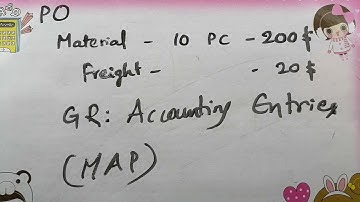 PO
Material - 10 PC - 200 $
Freight - - 20 $
GR: Accounting Entries
(MAP)